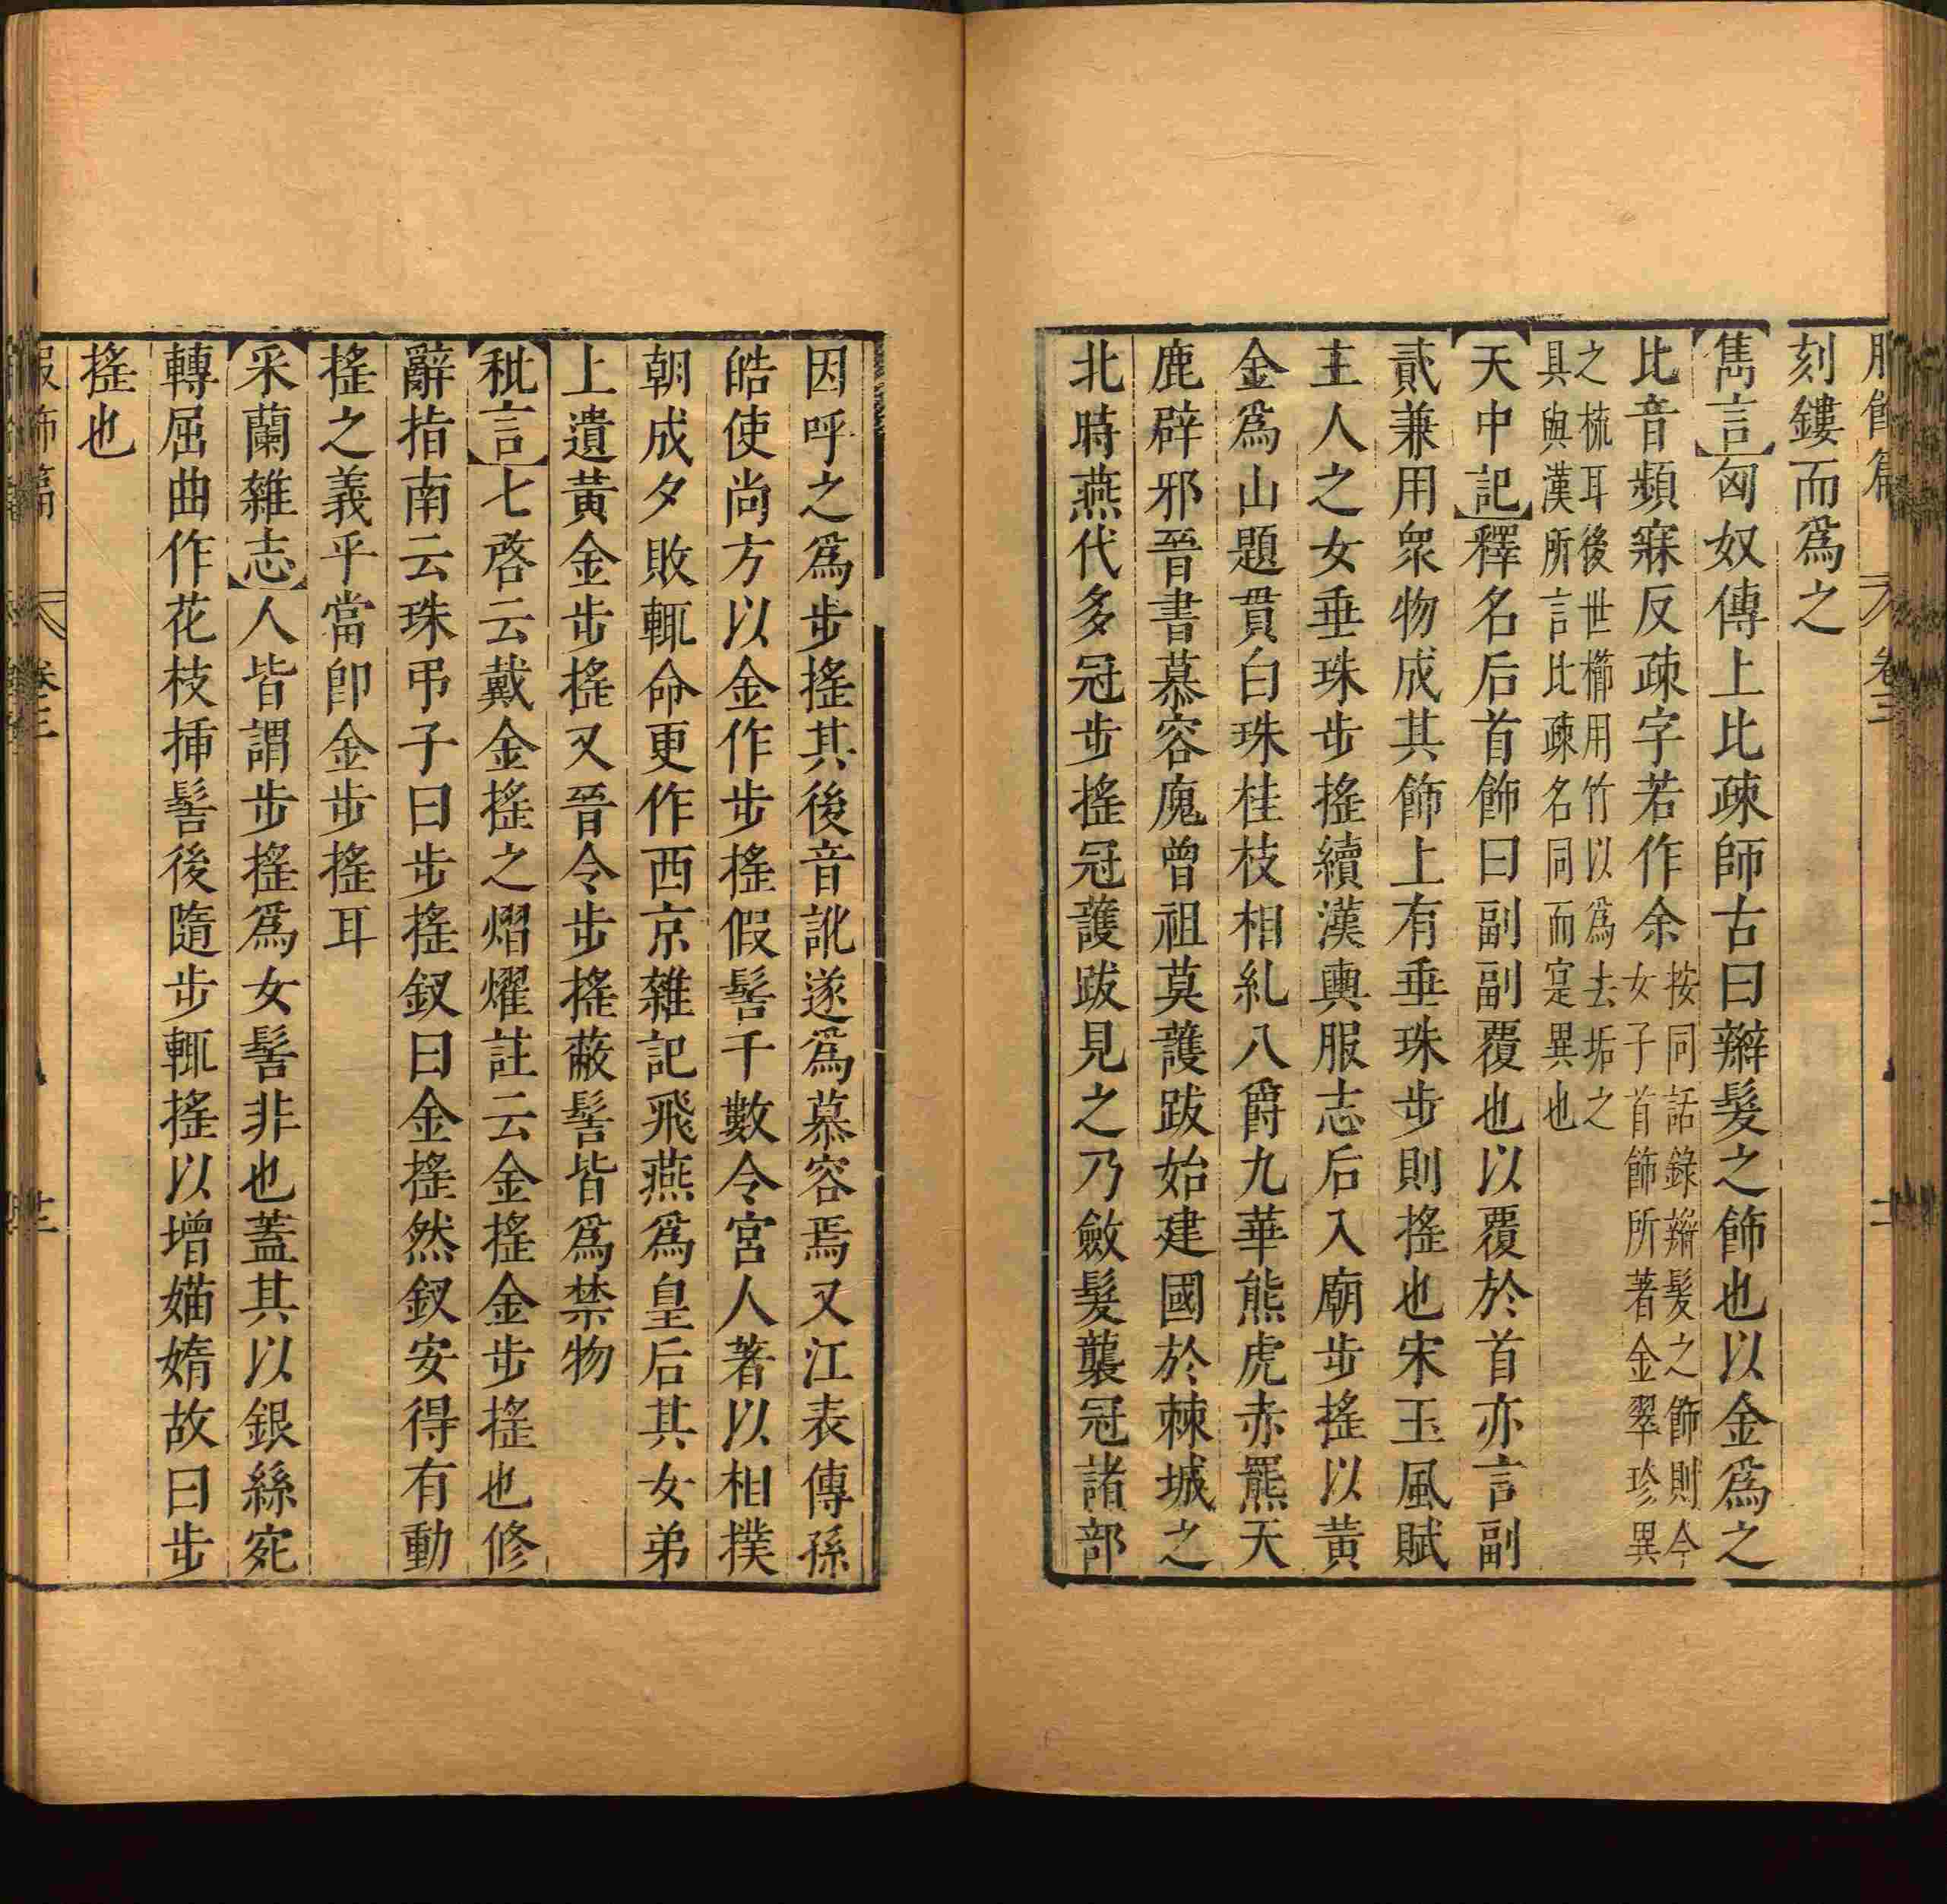 刻鏤而爲之
雋言匈奴傳上比疎師古曰辮髮之飾也以金爲之
比音頻寐反疎字若作余按同話錄辮髮之飾則今女子首飾所著金翠珍異
之梳耳後世櫛用竹以爲去垢之具與漢所言比疎名同而寔異也
天中記釋名后首飾曰副副覆也以覆於首亦言副
貳兼用衆物成其飾上有垂珠步則搖也宋玉風賦
主人之女垂珠步搖續漢輿服志后入廟步搖以黃
金爲山題貫白珠桂枝相糺八爵九華熊虎赤羆天
鹿辟邪晉書慕容廆曾祖莫護跋始建國於棘城之
北時燕代多冠步搖冠護跋見之乃斂髮襲冠諸部
因呼之爲步搖其後音訛遂爲慕容焉又江表傳孫
皓使尚方以金作步搖假髻千數令宮人著以相撲
朝成夕敗輒命更作西京雜記飛燕爲皇后其女弟
上遺黃金步搖又晉令步搖蔽髻皆爲禁物
秕言七啓云戴金搖之熠燿註云金搖金步搖也修
辭指南云珠弔子曰步搖釵曰金搖然釵安得有動
搖之義乎當卽金步搖耳
采蘭雜志人皆謂步搖爲女髻非也蓋其以銀絲宛
轉屈曲作花枝揷髻後隨步輒搖以增媌媠故曰步
搖也
服飾篇 卷三